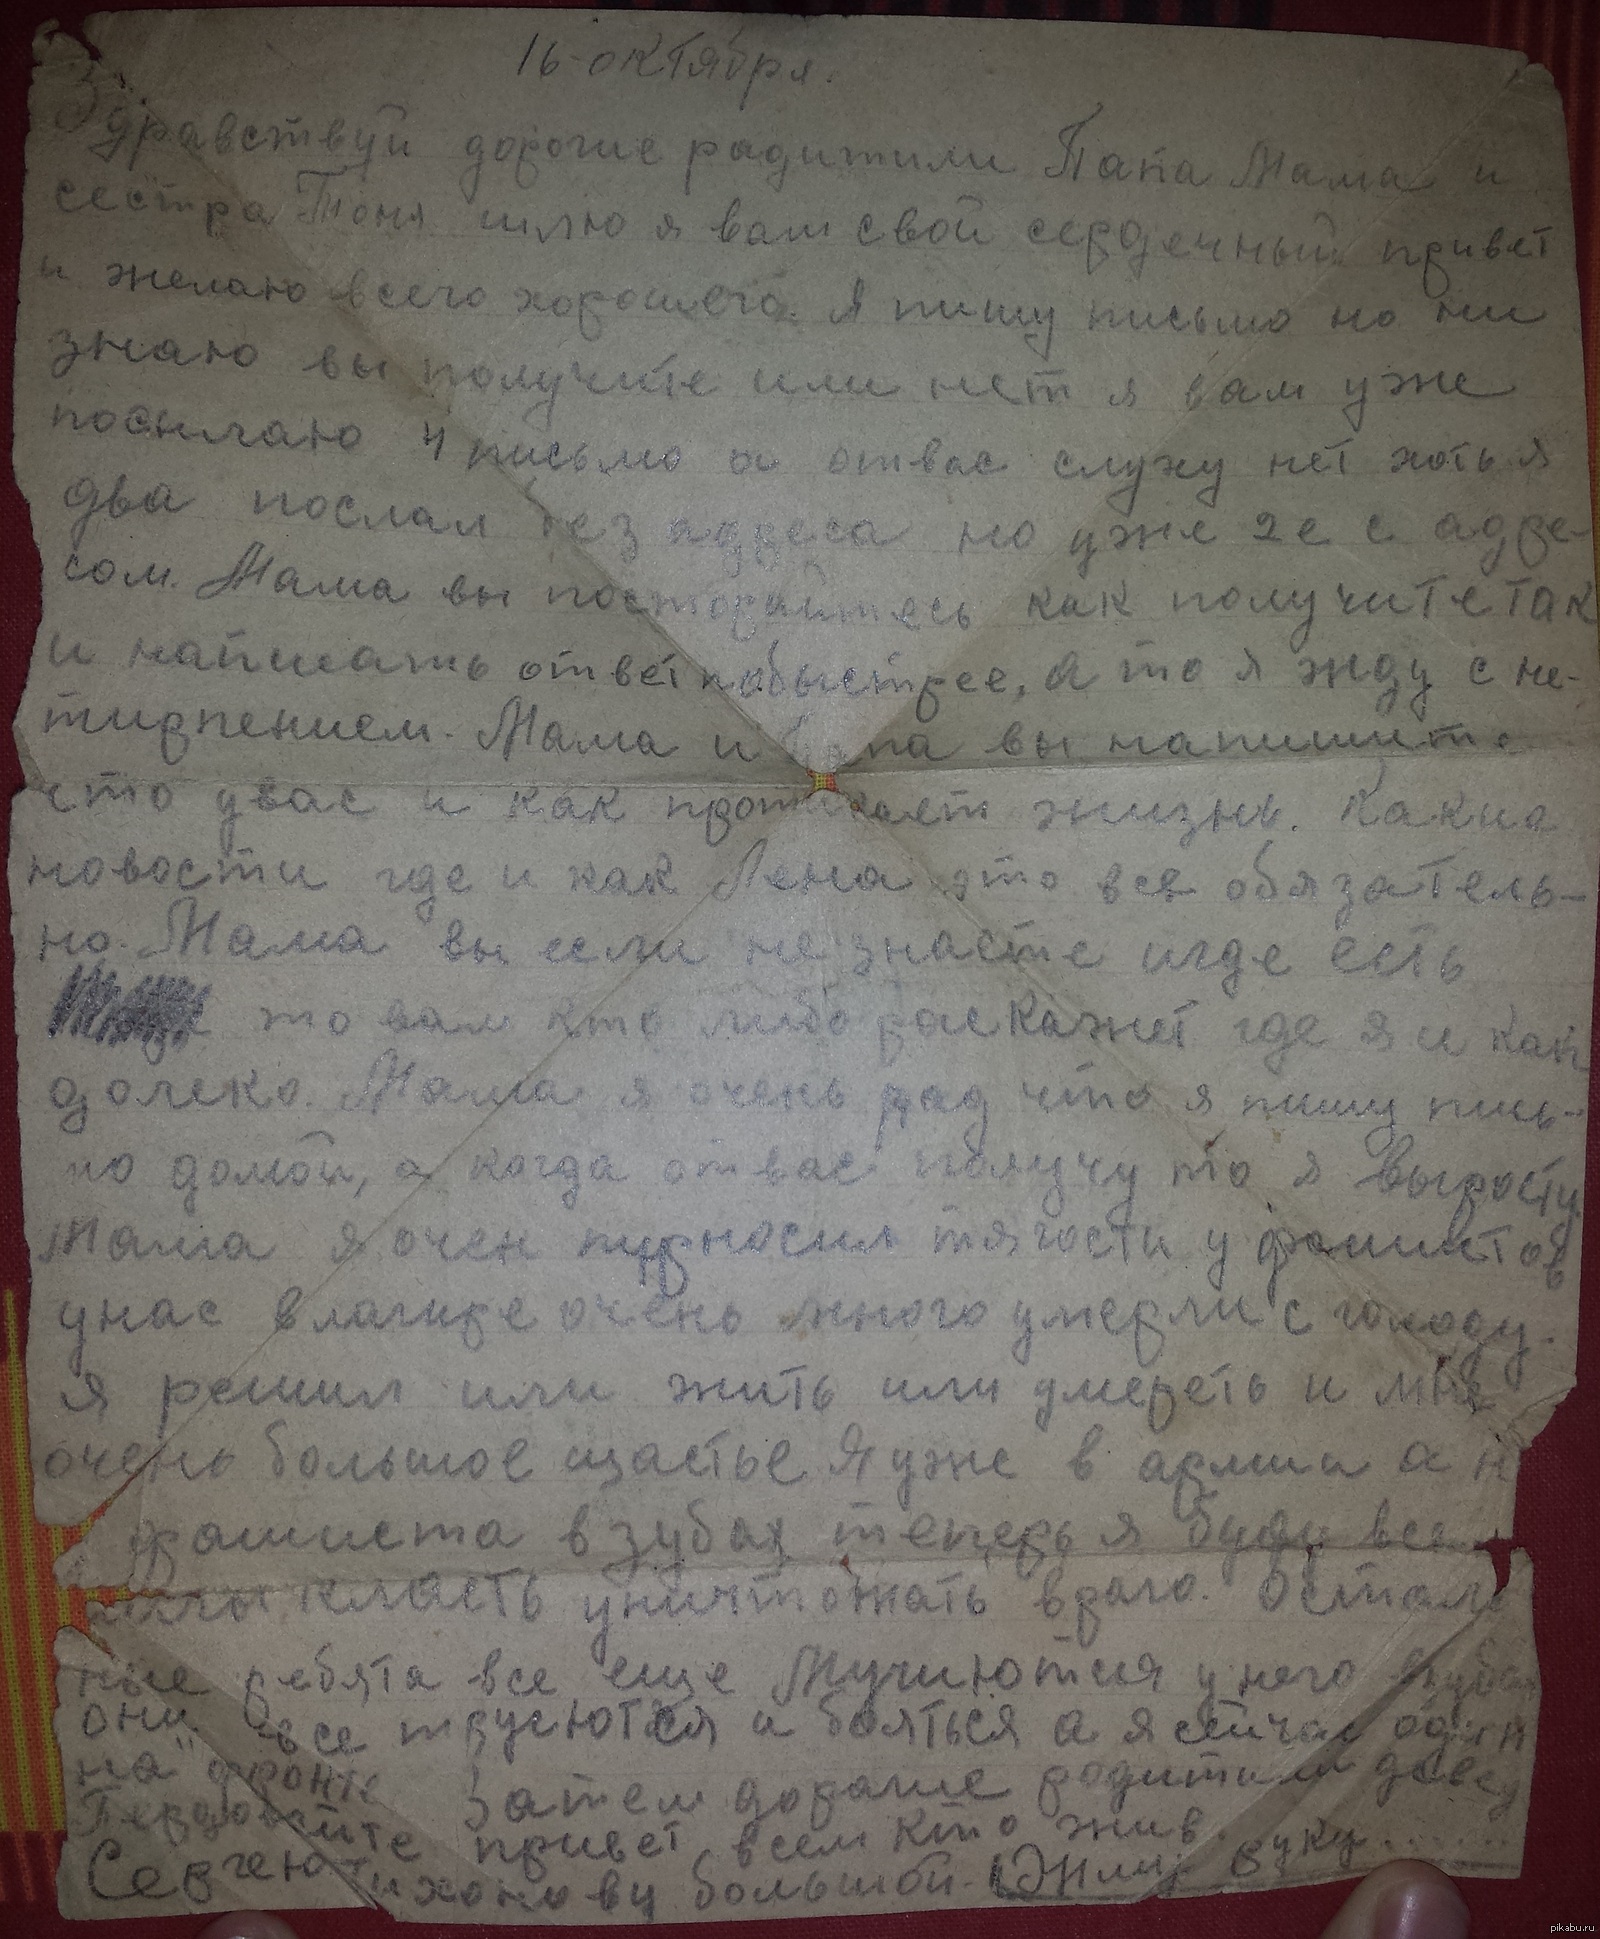 16-октября.
Здравствуй дорогие радитили Папа Мама и
сестра Тоня шлю я вам свой сердечный привет
и желаю всего хорошего. Я пишу письмо но ни
знаю вы получите или нет я вам уже
посылаю 4 письмо а отвас слуху нет хоть я
два послал без адреса но уже 2е с адре-
сом. Мама вы посторайтесь как получите так
и написать ответ побыстрее, а то я жду с не-
тирпением. Мама и папа вы напишите
что увас и как протикает жизнь. Какие
новости где и как Лена это все обязатель-
но. Мама вы если не знаете игде есть
то вам кто либо раскажет где я и как
долеко. Мама я очень рад что я пишу пись-
мо домой, а когда отвас получу то я выросту.
Мама я очен пирносил тягости у фашистов
унас влагире очень много умерли с голоду.
я решил или жить или умереть и мне
очень большое щастье Я уже в армии а н
фашиста в зубах теперь я буду все
силы класть уничтожать враго. Осталь
ные ребята все еще мучиются у него взубах
они все трусются и бояться а я сейчас один
на фронте Затем дорогие родители досвед
Передовайте привет всем кто жив.
Сергею Тихонову большой. Жму руку.......
pikabu.ru